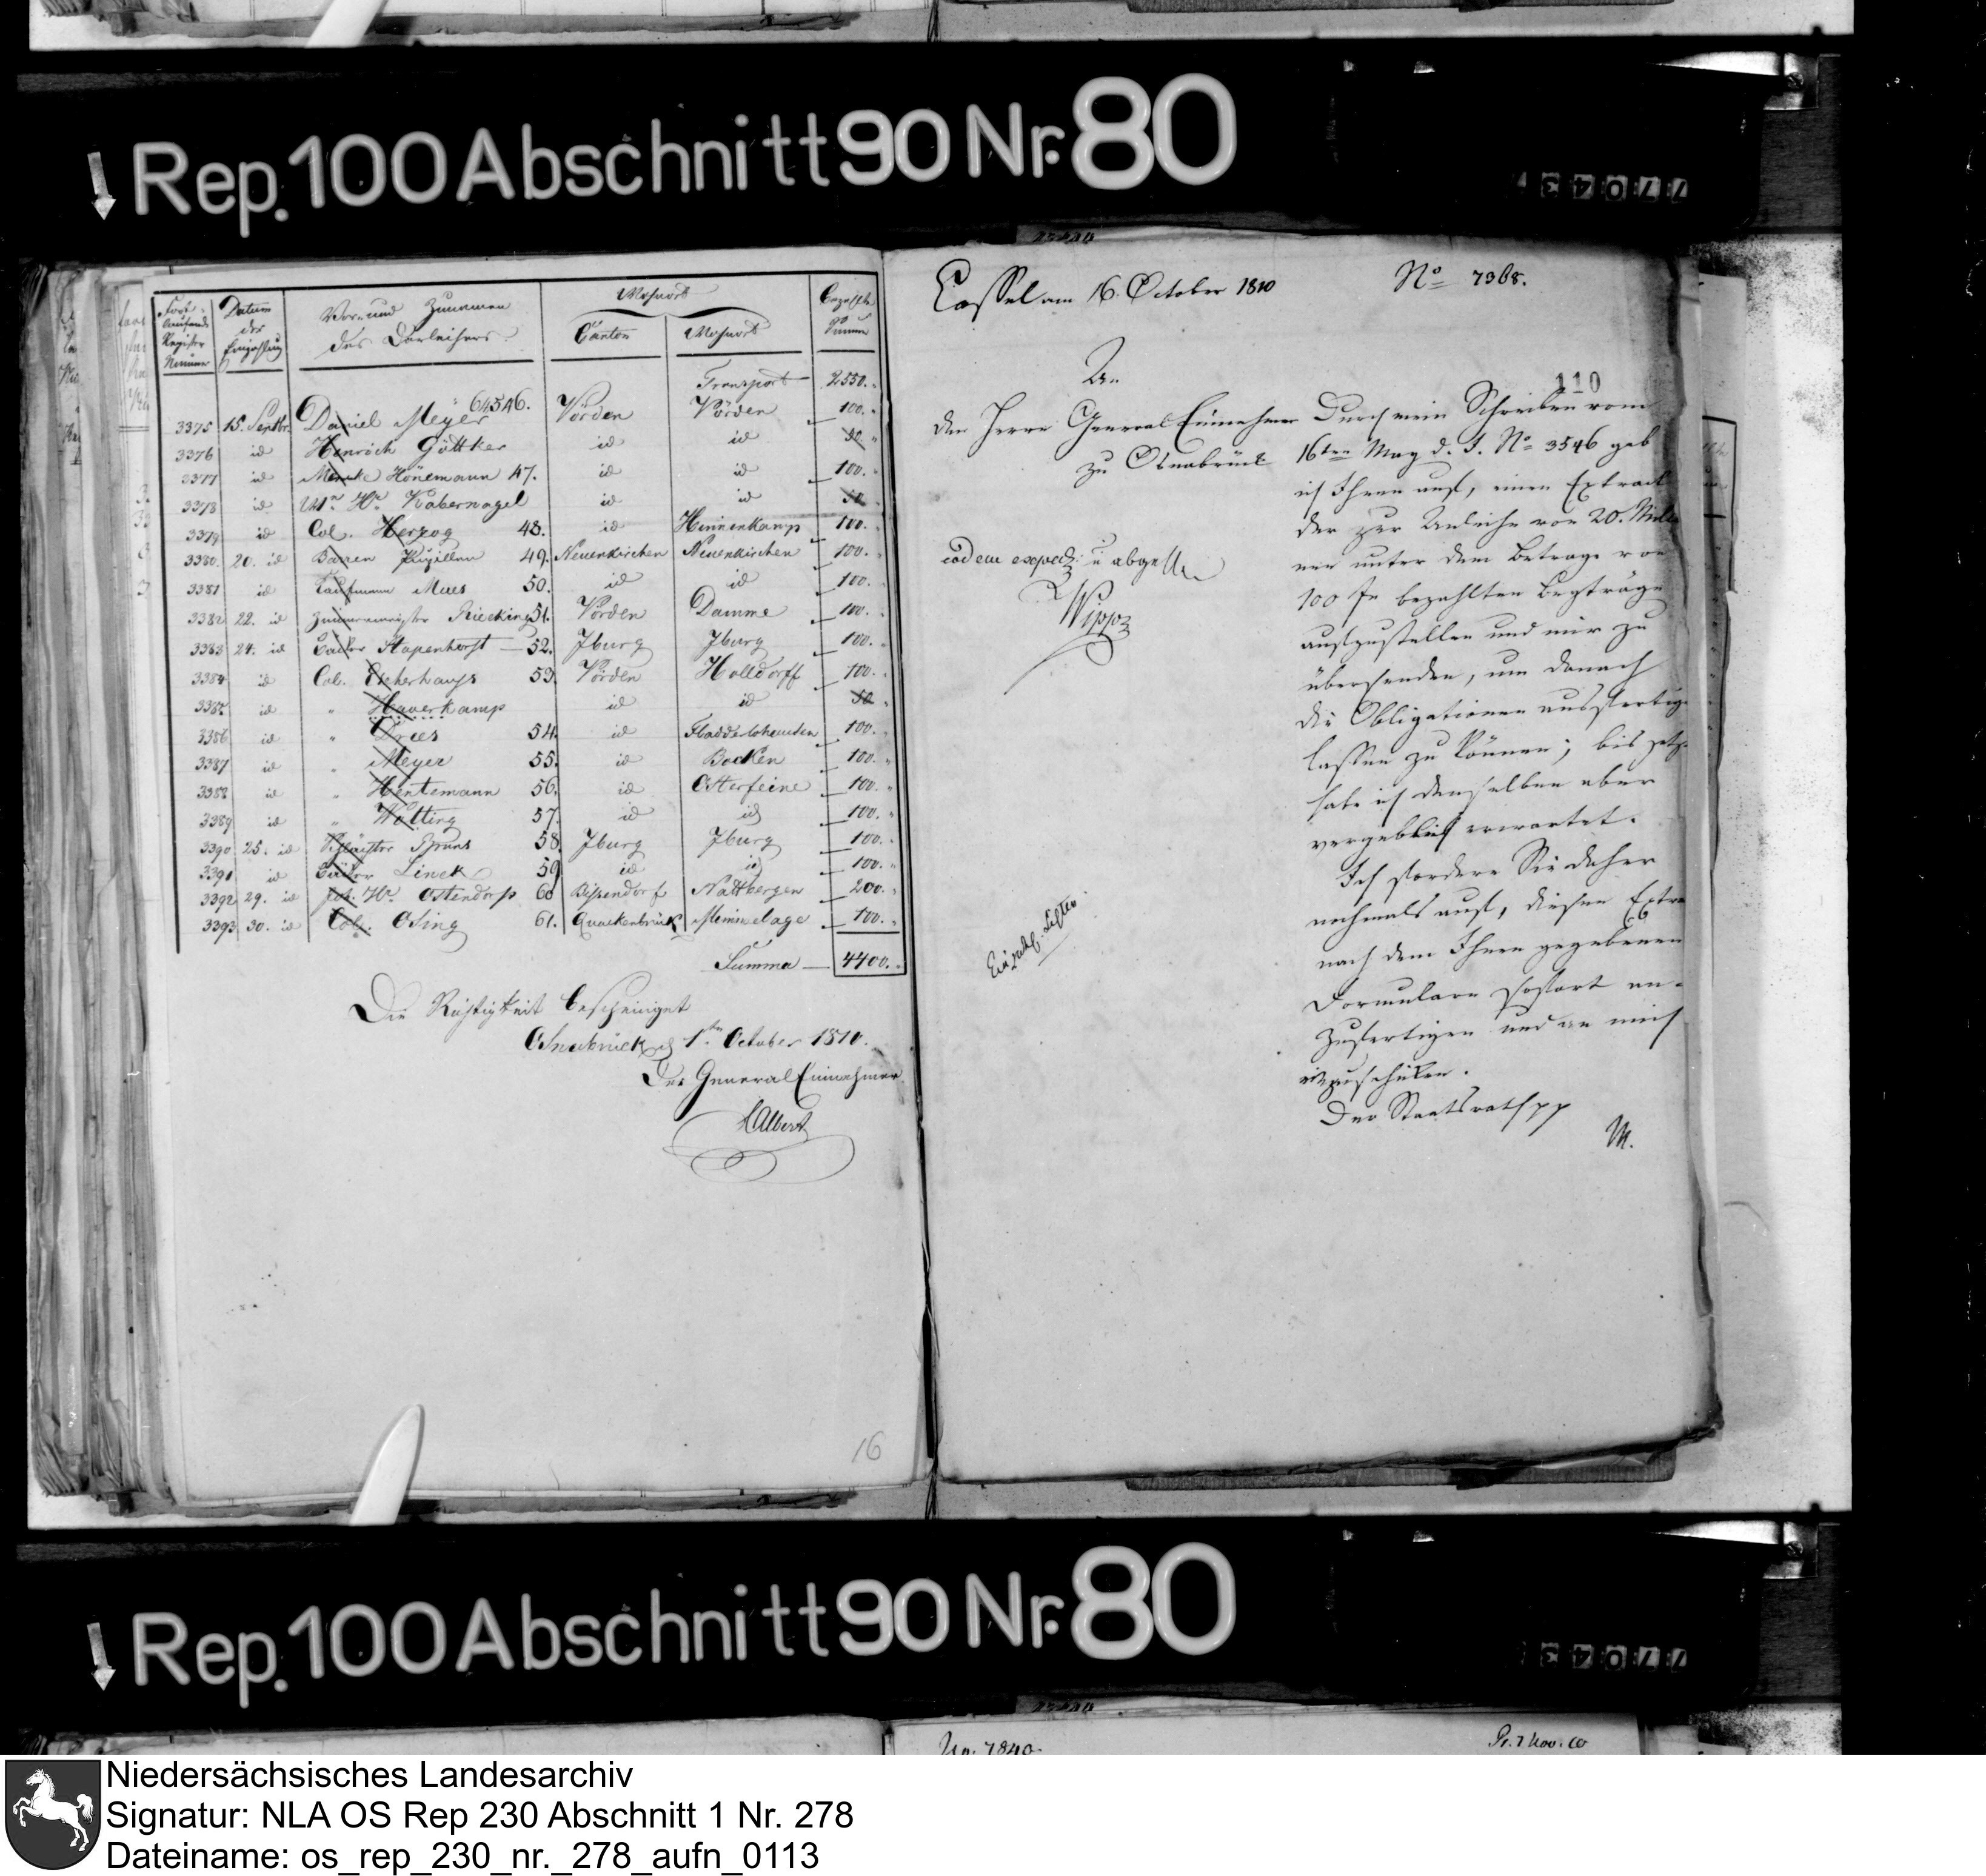 ↓ Rep. 100 Abschnitt 90 Nr. 80
Fort-laufende Register Nummer | Datum der Einzahlung | Vor- und Zunamen des Darleihers | Wohnort | Bezahlte Summe
Canton | Wohnort
Transport 2550.
64546.
3375 15. Septbr. Daniel Meyer Vörden Vörden 100.
3376 id Henrich Göttker id id 50.
3377 id Menke Hönemann 47. id id 100.
3378 id Wr. Hr. Kabernagel id id 50
3379 id Col. Herzog 48. id Hinnenkamp 100.
3380. 20. id 49. Neuenkirchen Neuenkirchen 100.
3381 id Kaufmann Mues 50. id id 100.
3382 22. id Zimmermeister Rieeking 51. Vörden Damme 100.
3383 24. id Stapenhorst 52. Jburg Jburg 100.
3384 id Col. Escherhays 53. Vörden Holldorff 100.
3385 id " Haverkamp id id 50
3386 id " Dries 54. id Fladderlohausen 100.
3387 id " Meyer 55. id Bocken 100.
3388 id " Hentemann 56. id Osterfeine 100.
3389 id " Wolting 57. id id 100.
3390 25. id Bruns 58. Jburg Jburg 100.
3391 id Linek 59 id id 100.
3392 29. id Joh. Hr. Ostendorp 60 Bissendorf Nattbergen 200.
3393 30. id Col. Osing 61. Quackenbrück Mimmelage 100.
Summa 4400.
Die Richtigkeit bescheiniget
Osnabrück d 1ten October 1810.
Der General Einnehmer
Albert
16
Cassel am 16 October 1810
No 7368.
110
An
den Herrn General Einnehmer
zu Osnabrück
eodem exped: u abge
Wippo
Einzahl. Listen
Durch mein Schreiben vom
16ten May d. J. No 3546 gab
ich Ihnen auf, einen Extract
der zur Anleihe von 20. Mill
nen unter dem Betrage von
100 fr bezahlten Beyträge
aufzustellen und mir zu
übersenden, um danach
die Obligationen ausfertig
lassen zu können; bis jetzt
habe ich denselben aber
vergeblich erwartet.
Ich fordere Sie daher
nochmals auf, diesen Extra
nach dem Ihnen gegebenen
Formulare sofort an-
zufertigen und an mich
einzuschicken.
Der Staatsrath pp
M.
↓ Rep. 100 Abschnitt 90 Nr. 80
No. 7840.
Pr. 7 Nov. 10
Niedersächsisches Landesarchiv
Signatur: NLA OS Rep 230 Abschnitt 1 Nr. 278
Dateiname: os_rep_230_nr._278_aufn_0113